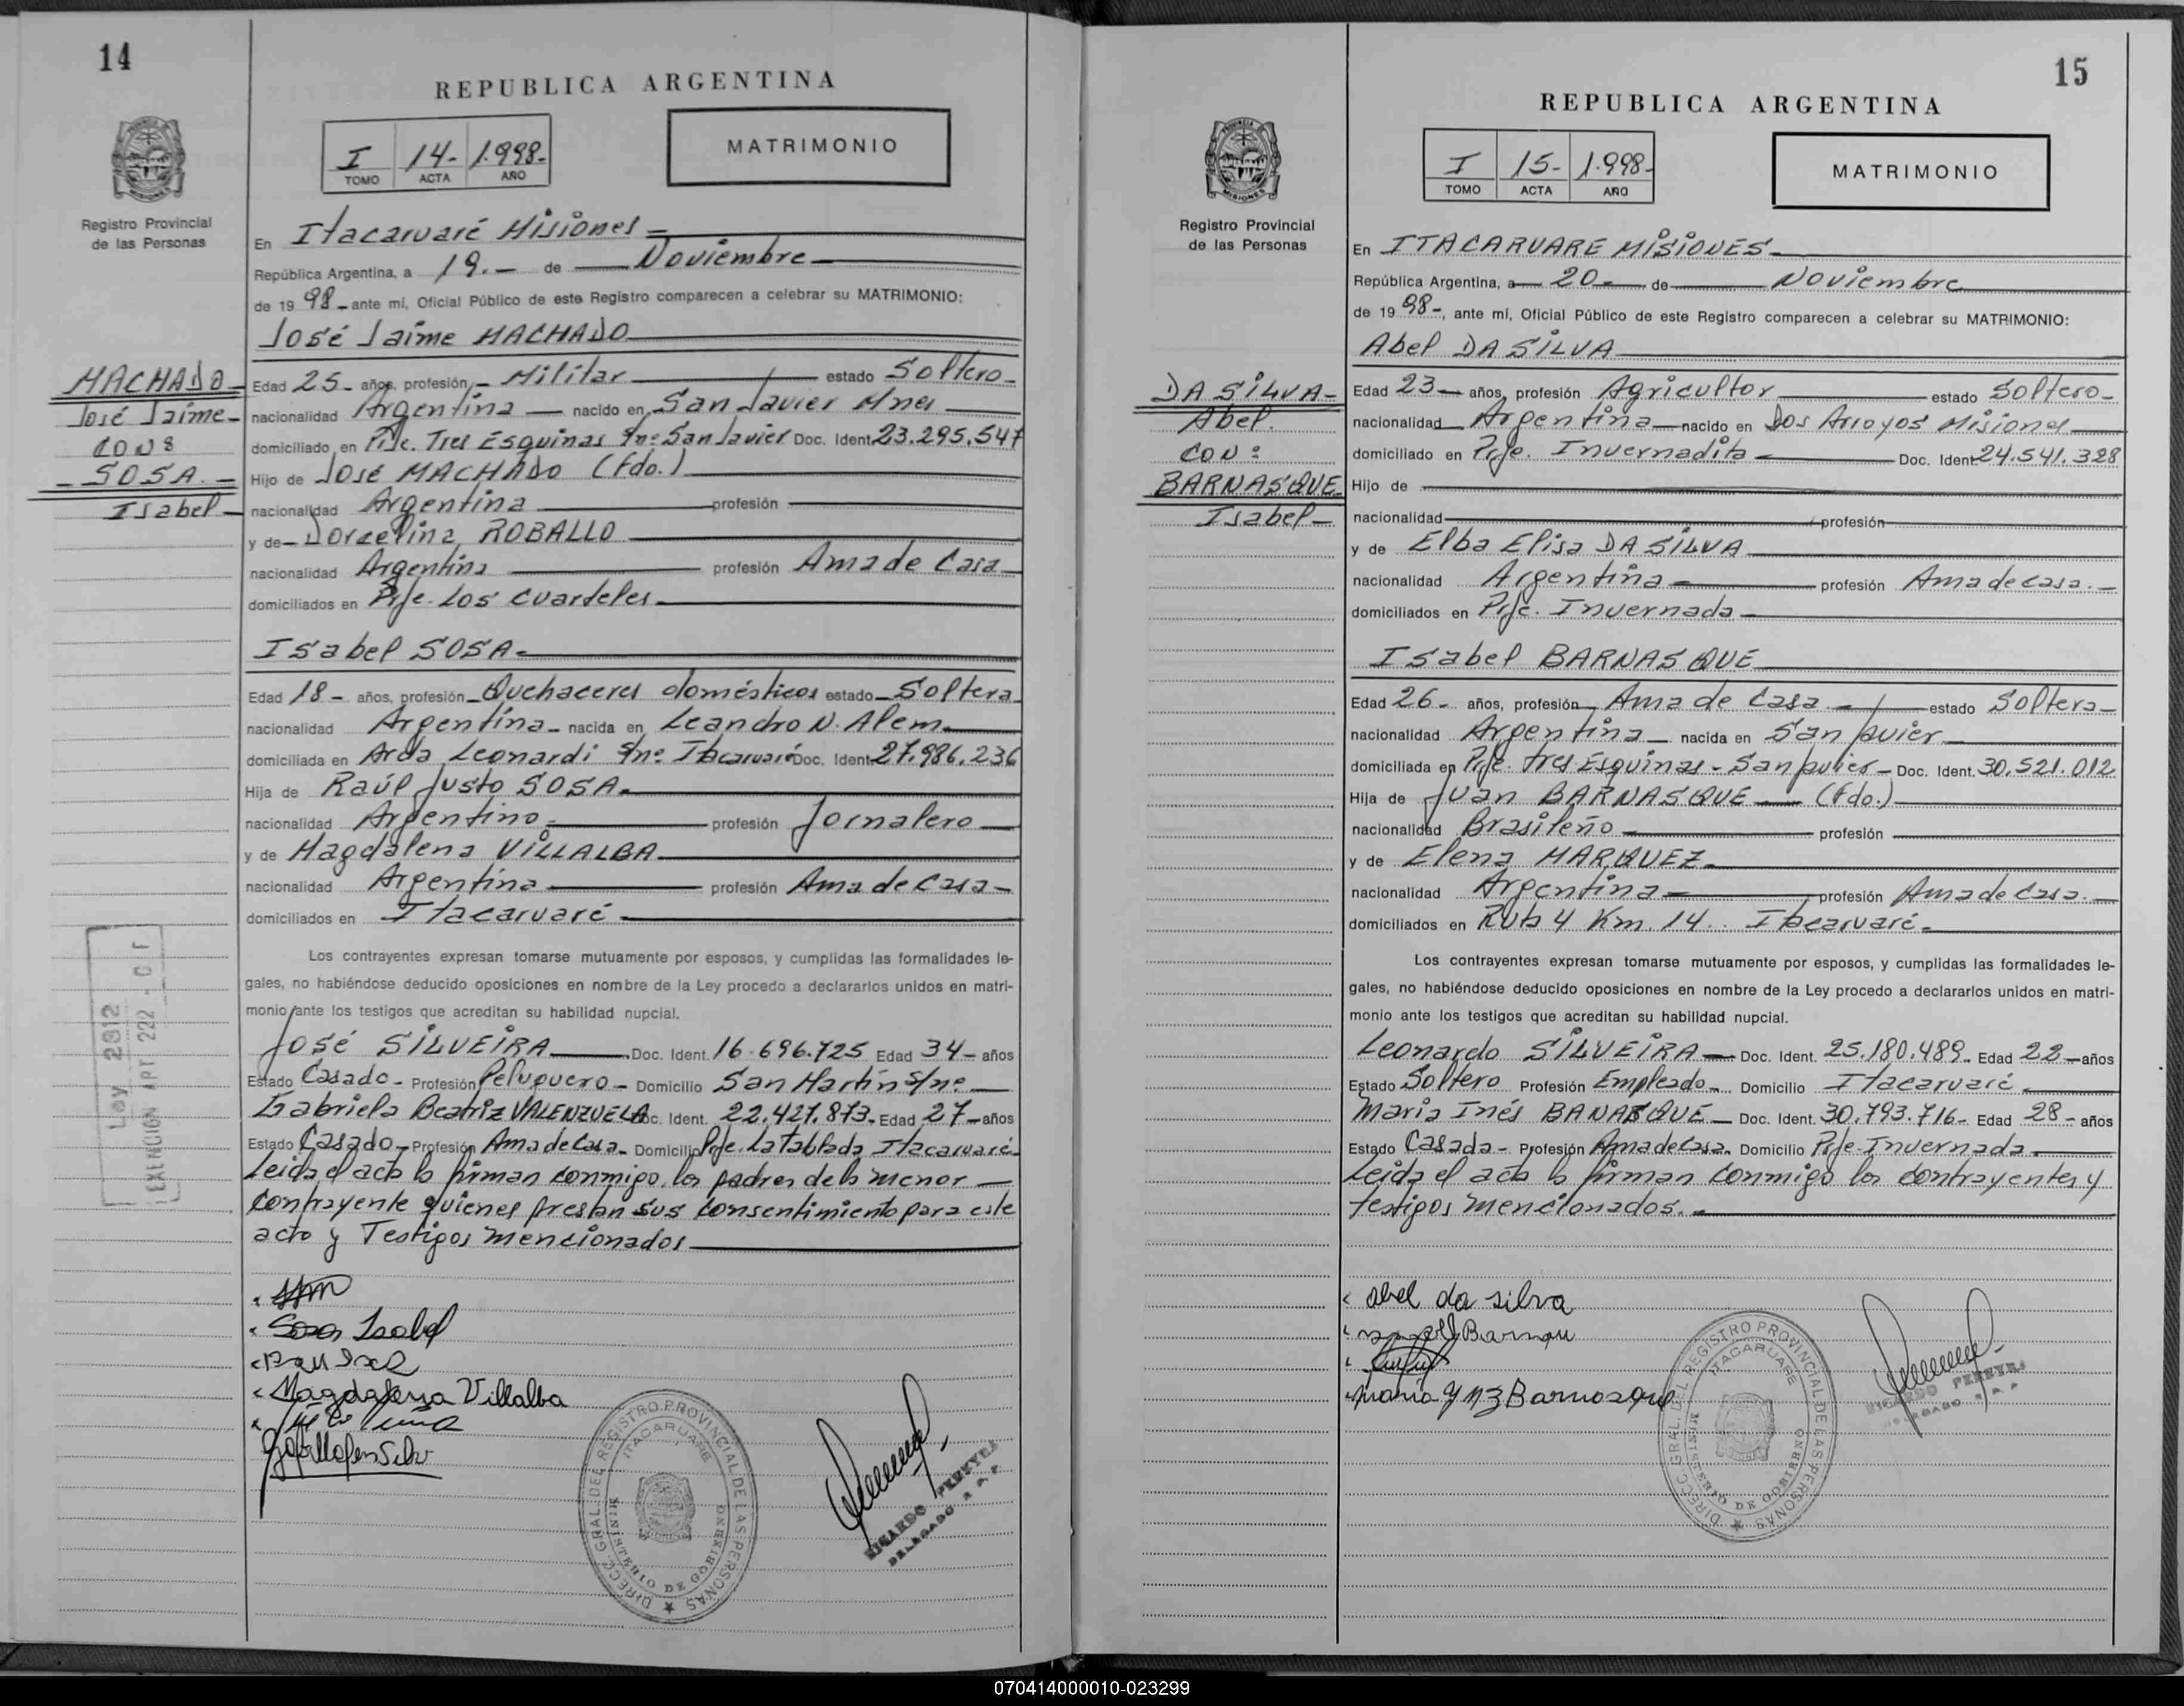 14
REPUBLICA ARGENTINA
I 14- 1.998-
TOMO ACTA AÑO
MATRIMONIO
Registro Provincial
de las Personas
En Itacaruaré Misiones
República Argentina, a 19.- de Noviembre
de 19 98 - ante mí, Oficial Público de este Registro comparecen a celebrar su MATRIMONIO:
José Jaime MACHADO
MACHADO
José Jaime-
CON:
SOSA.-
Isabel-
Edad 25- años, profesión - Militar estado Soltero-
nacionalidad Argentina nacido en San Javier Mnes
domiciliado en Pje. Tres Esquinas s/nº San Javier Doc. Ident 23.295.547
Hijo de José MACHADO (fdo.)
nacionalidad Argentina profesión
y de - Dorcelina ROBALLO
nacionalidad Argentina profesión Ama de Casa
domiciliados en Pje. Los Cuarteles
Isabel SOSA-
Edad 18- años, profesión Quehaceres domésticos estado Soltera
nacionalidad Argentina- nacida en Leandro N. Alem
domiciliada en Arda Leonardi s/nº Itacaruaré Doc. Ident 27.986.236
Hija de Raúl Justo SOSA
nacionalidad Argentino profesión Jornalero
y de Magdalena VILLALBA
nacionalidad Argentina profesión Ama de Casa-
domiciliados en Itacaruaré
Los contrayentes expresan tomarse mutuamente por esposos, y cumplidas las formalidades le-
gales, no habiéndose deducido oposiciones en nombre de la Ley procedo a declararlos unidos en matri-
monio ante los testigos que acreditan su habilidad nupcial.
José SILVEIRA Doc. Ident. 16.696.725 Edad 34- años
Estado Casado- Profesión Peluquero- Domicilio San Martín s/nº
Gabriela Beatriz VALENZUELA Doc. Ident. 22.427.873- Edad 27- años
Estado Casado- Profesión Ama de Casa- Domicilio Pje. La Tablada Itacaruaré
Leida el acta la firman conmigo, los padres de la menor
contrayente quienes prestan sus consentimiento para este
acto y Testigos mencionados
Ley 2812
EXENCION ART 222
Sosa Isabel
Magdalena Villalba
DIRECC. GRAL. DEL REGISTRO PROVINCIAL DE LAS PERSONAS
ITACARUARE
MINISTERIO DE GOBIERNO
RICARDO PEREYRA
DELEGADO R.P.P.
15
REPUBLICA ARGENTINA
I 15- 1.998-
TOMO ACTA AÑO
MATRIMONIO
PROVINCIA DE MISIONES
Registro Provincial
de las Personas
En ITACARUARE MISIONES-
República Argentina, a 20- de Noviembre
de 19 98-, ante mí, Oficial Público de este Registro comparecen a celebrar su MATRIMONIO:
Abel DA SILVA
DA SILVA-
Abel.
CON:
BARNASQUE
Isabel-
Edad 23- años, profesión Agricultor estado Soltero-
nacionalidad Argentina nacido en Dos Arroyos Misiones
domiciliado en Pje. Invernadita Doc. Ident 24.541.328
Hijo de
nacionalidad profesión
y de Elba Elisa DA SILVA
nacionalidad Argentina profesión Ama de casa.-
domiciliados en Pje. Invernada
Isabel BARNASQUE
Edad 26- años, profesión Ama de Casa estado Soltera-
nacionalidad Argentina nacida en San Javier
domiciliada en Pje. Tres Esquinas- San Javier- Doc. Ident. 30.521.012
Hija de Juan BARNASQUE (fdo.)
nacionalidad Brasileño profesión
y de Elena MARQUEZ
nacionalidad Argentina profesión Ama de Casa.
domiciliados en Ruta 4 Km. 14.. Itacaruaré.
Los contrayentes expresan tomarse mutuamente por esposos, y cumplidas las formalidades le-
gales, no habiéndose deducido oposiciones en nombre de la Ley procedo a declararlos unidos en matri-
monio ante los testigos que acreditan su habilidad nupcial.
Leonardo SILVEIRA Doc. Ident. 25.180.489- Edad 22- años
Estado Soltero Profesión Empleado- Domicilio Itacaruaré
Maria Inés BANASQUE Doc. Ident. 30.793.716- Edad 28- años
Estado Casada- Profesión Ama de Casa- Domicilio Pje. Invernada
Leida el acta la firman conmigo los contrayentes y
testigos mencionados.
abel da silva
maria ynz Barnasque
DIRECC. GRAL. DEL REGISTRO PROVINCIAL DE LAS PERSONAS
ITACARUARE
MINISTERIO DE GOBIERNO
RICARDO PEREYRA
DELEGADO R.P.P.
070414000010-023299